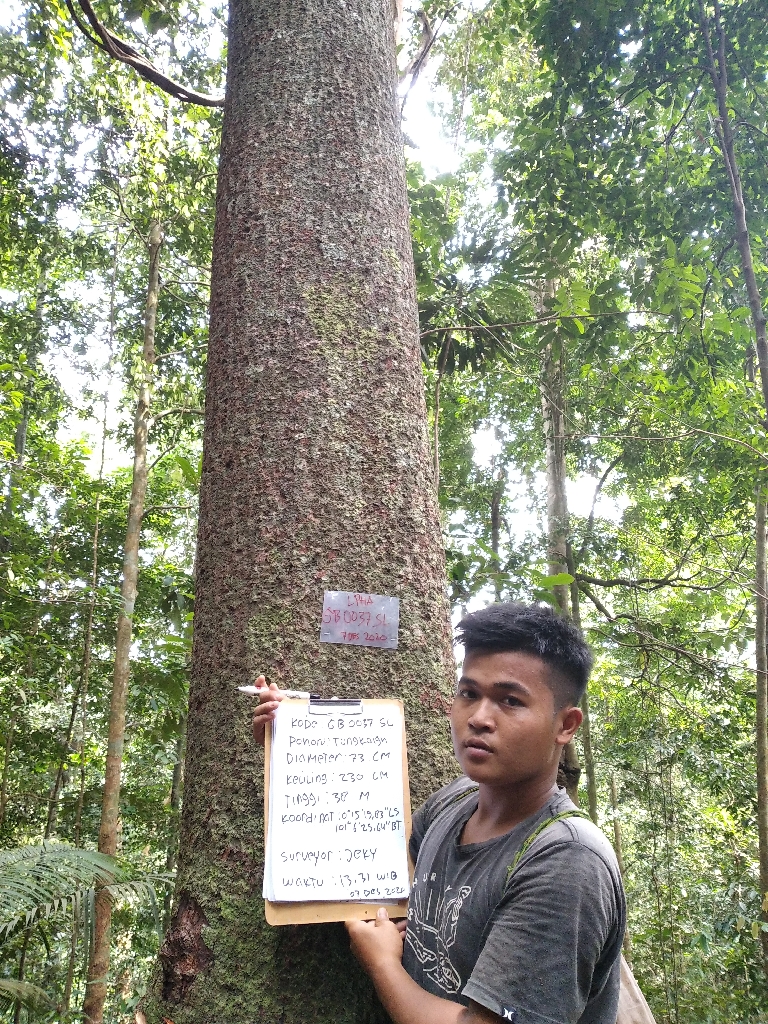 LPHA
GB 0037 SL
7 DES 2020
Kode : GB 0037 SL
Pohon : Tungkaign
Diameter : 73 CM
Keliling : 230 CM
Tinggi : 38 M
Koordinat : 0°15'19,83"LS
101°6'25,64"BT
Surveyor : Jeky
Waktu : 13.31 WIB
07 Des 2020